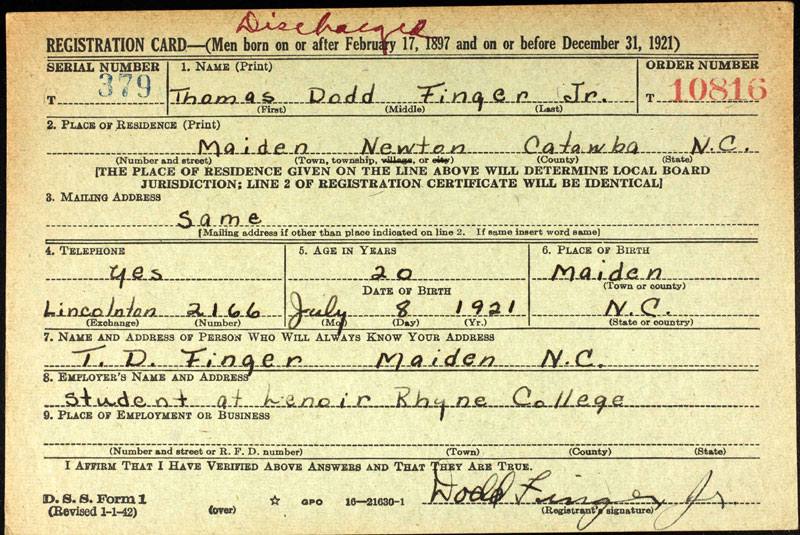 Discharged
REGISTRATION CARD—(Men born on or after February 17, 1897 and on or before December 31, 1921)
SERIAL NUMBER 1. NAME (Print) ORDER NUMBER
T 379 Thomas Dodd Finger Jr. T 10816
(First) (Middle) (Last)
2. PLACE OF RESIDENCE (Print)
Maiden Newton Catawba N.C.
(Number and street) (Town, township, village, or city) (County) (State)
[THE PLACE OF RESIDENCE GIVEN ON THE LINE ABOVE WILL DETERMINE LOCAL BOARD
JURISDICTION; LINE 2 OF REGISTRATION CERTIFICATE WILL BE IDENTICAL]
3. MAILING ADDRESS
Same
[Mailing address if other than place indicated on line 2. If same insert word same]
4. TELEPHONE 5. AGE IN YEARS 6. PLACE OF BIRTH
yes 20 Maiden
DATE OF BIRTH (Town or county)
Lincolnton 2166 July 8 1921 N.C.
(Exchange) (Number) (Mo.) (Day) (Yr.) (State or country)
7. NAME AND ADDRESS OF PERSON WHO WILL ALWAYS KNOW YOUR ADDRESS
T. D. Finger Maiden N.C.
8. EMPLOYER'S NAME AND ADDRESS
Student at Lenoir Rhyne College
9. PLACE OF EMPLOYMENT OR BUSINESS
(Number and street or R. F. D. number) (Town) (County) (State)
I AFFIRM THAT I HAVE VERIFIED ABOVE ANSWERS AND THAT THEY ARE TRUE.
D. S. S. Form 1 Dodd Finger Jr.
(Revised 1-1-42) (over) ☆ GPO 16—21630-1 (Registrant's signature)